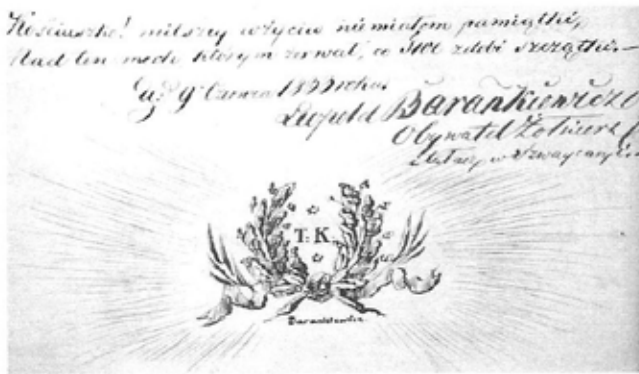 Kościuszko! milszey w życiu nie miałem pamiątki,
Nad ten mech którym zerwał, co zdobi szczątki.—
9 Czerwca 1833 roku
Leopold Barankiewicz
Obywatel Żołnierz
w Szwaycaryi
T. K.
Barankiewicz